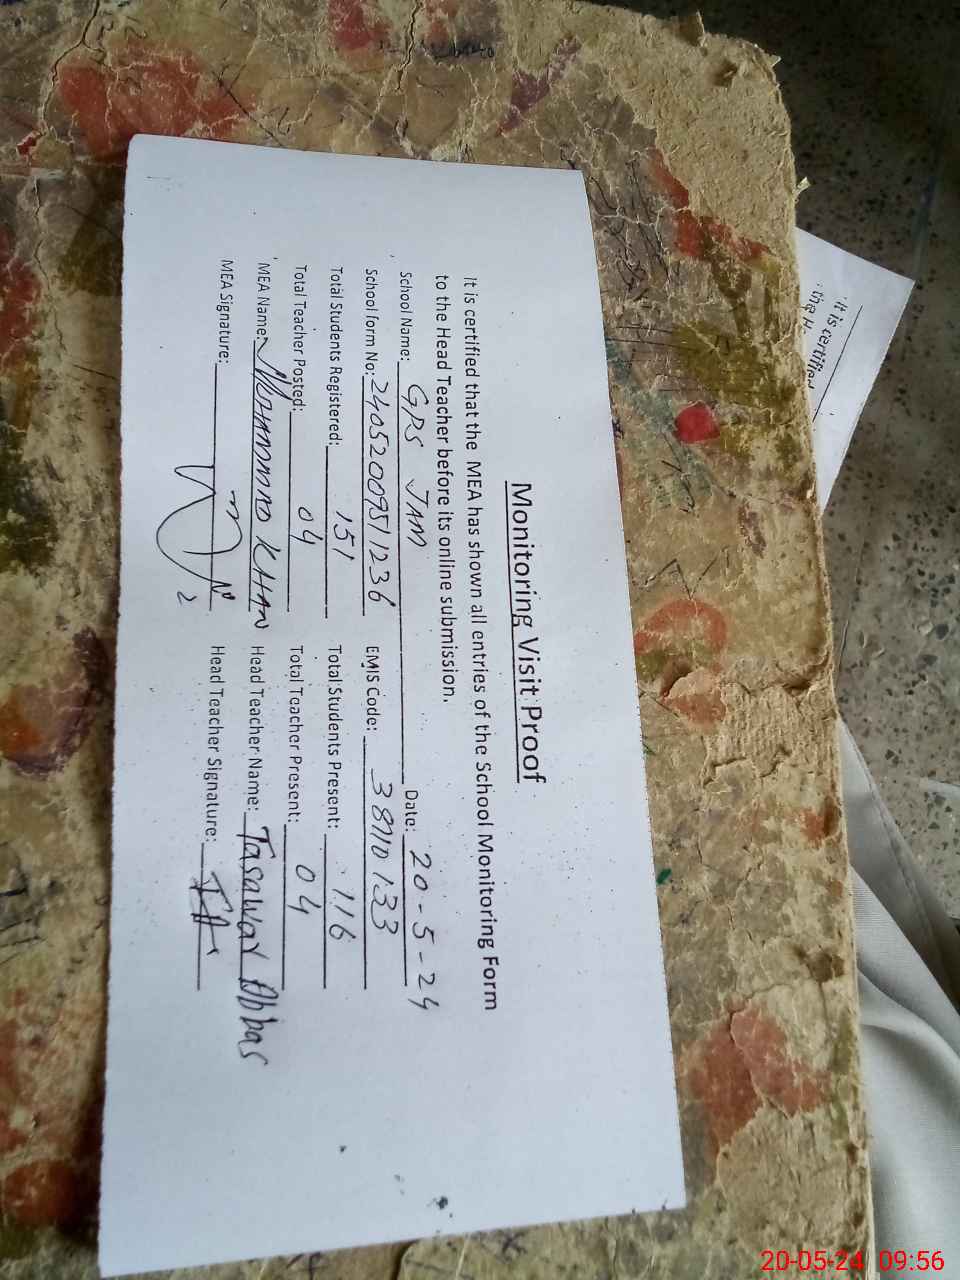 Monitoring Visit Proof
It is certified that the MEA has shown all entries of the School Monitoring Form
to the Head Teacher before its online submission.
School Name: GPS JAM Date: 20-5-24
School form No: 2405200951236 EMIS Code: 38110133
Total Students Registered: 151 Total Students Present: 116
Total Teacher Posted: 04 Total Teacher Present: 04
MEA Name: MUHAMMAD KHAN Head Teacher Name: Tasawar Abbas
MEA Signature: Head Teacher Signature:
It is certified
the H
20-05-24 09:56